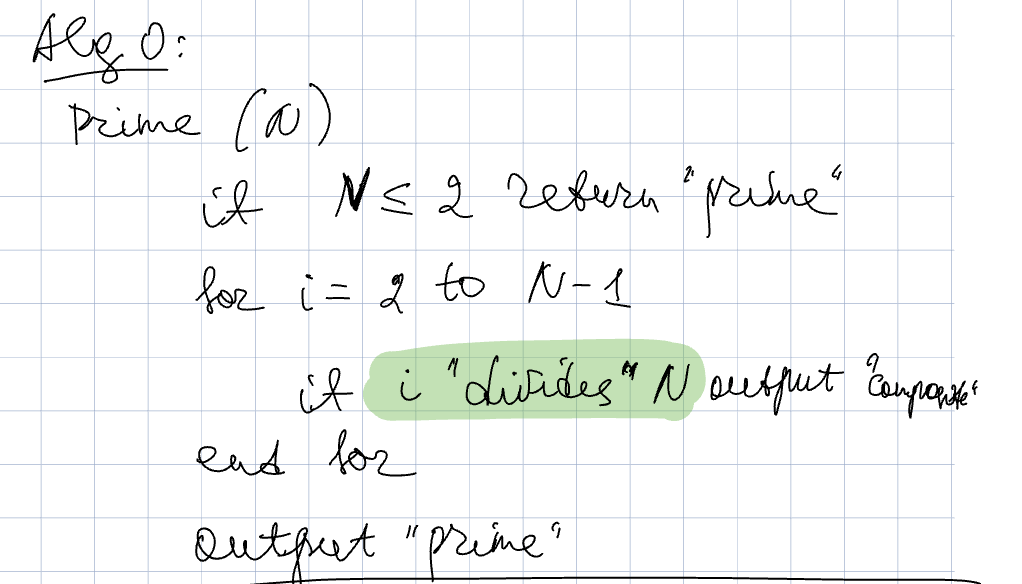 Alg 0:
prime (N)
if N ≤ 2 return "prime"
for i = 2 to N-1
if i "divides" N output "composite"
end for
output "prime"